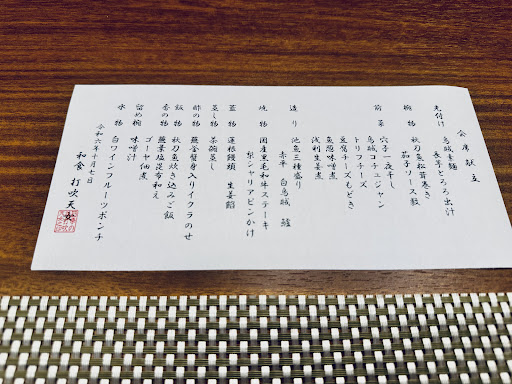 会席献立
先付け 烏賊素麺
長芋とろろ出汁
椀物 秋刀魚松茸巻き
茄子ソース鼓
前菜 穴子一夜干し
烏賊コチュジャン
トリュフチーズ
豆腐チーズもどき
魚惣味噌煮
浅利生姜煮
造り 池魚三種盛り
赤平 白烏賊 鱸
焼物 国産黒毛和牛ステーキ
梨シャリアピンかけ
蓋物 蓮根饅頭 生姜餡
蒸し物 茶碗蒸し
酢の物 燕蟹身入りイクラのせ
飯物 秋刀魚炊き込みご飯
香の物 燕葉塩昆布和え
ゴーヤ佃煮
留め椀 味噌汁
水物 白ワインフルーツポンチ
令和六年十月七日
和食 打吹天女